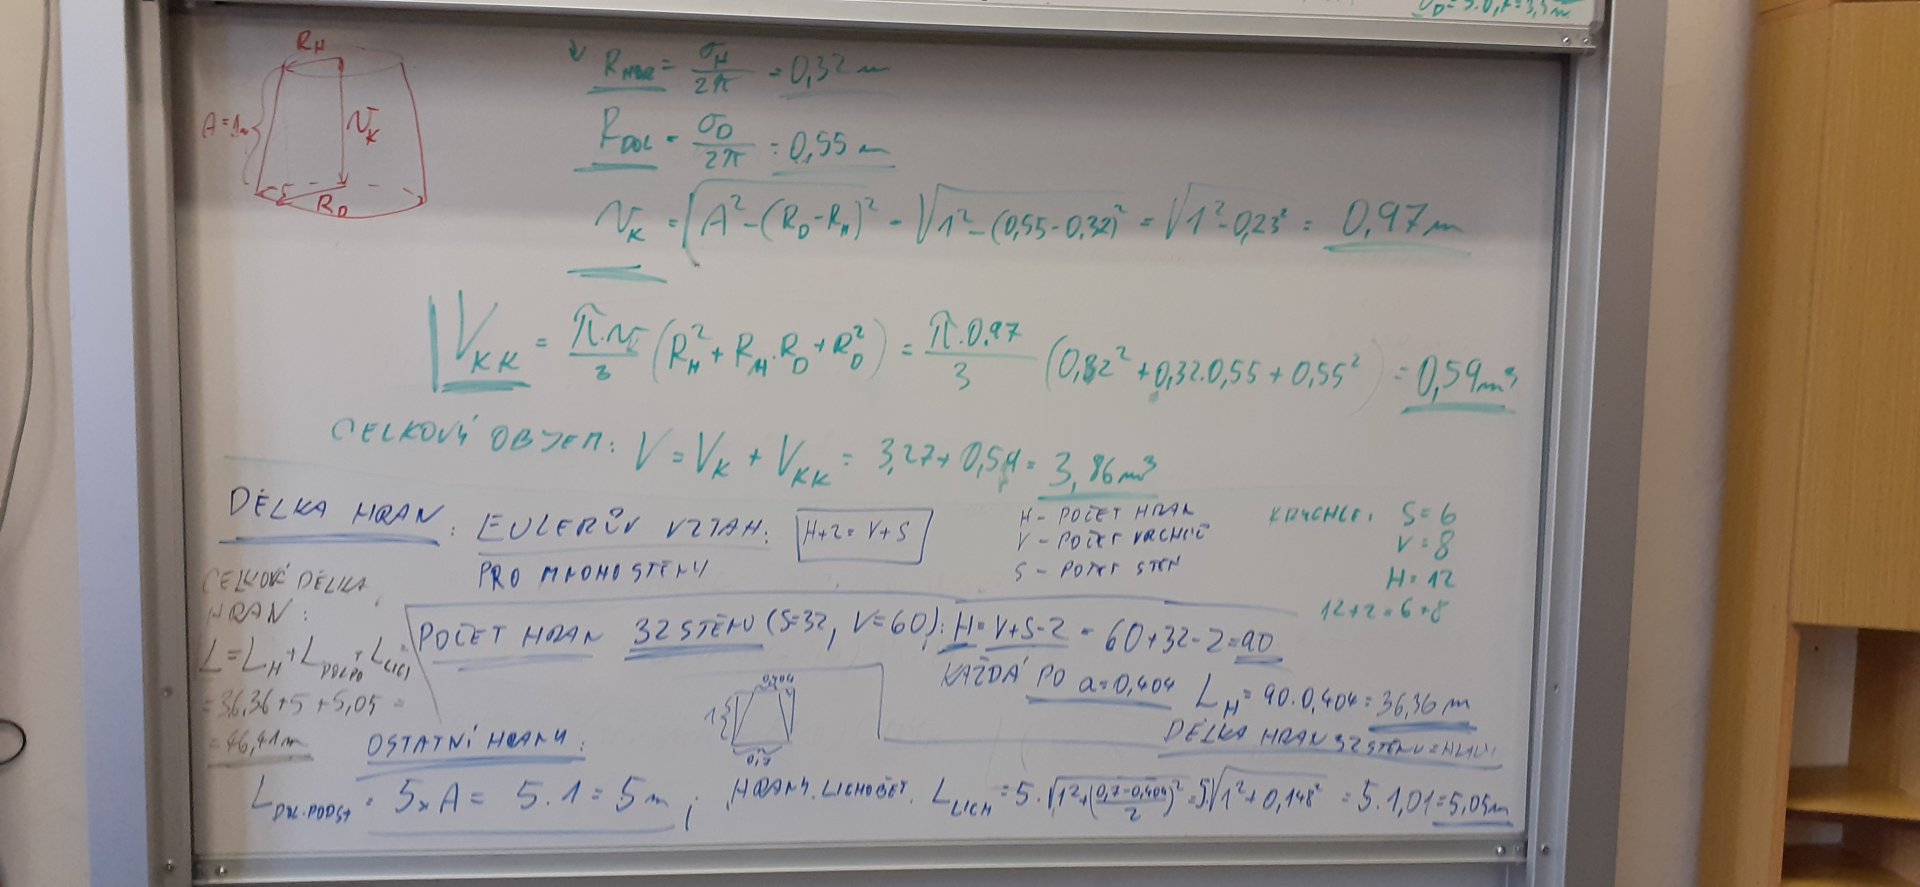 R_H
A = 1m
v_K
R_D
↓ R_HOR = σ_H / 2π = 0,32 m
R_DOL = σ_D / 2π = 0,55 m
v_K = √(A² - (R_D - R_H)²) = √(1² - (0,55 - 0,32)²) = √(1² - 0,23²) = 0,97 m
V_KK = π.v_K / 3 (R_H² + R_H.R_D + R_D²) = π.0,97 / 3 (0,32² + 0,32.0,55 + 0,55²) = 0,59 m³
CELKOVÝ OBJEM: V = V_K + V_KK = 3,27 + 0,59 = 3,86 m³
DÉLKA HRAN: EULERŮV VZTAH: H+2 = V+S
PRO MNOHOSTĚNY
H - POČET HRAN
V - POČET VRCHOLŮ
S - POČET STĚN
KRYCHLE: S = 6
V = 8
H = 12
12+2 = 6+8
CELKOVÁ DÉLKA
HRAN:
L = L_H + L_DOLPO + L_LICH
= 36,36 + 5 + 5,05 =
= 46,41 m
POČET HRAN 32 STĚNU (S=32, V=60): H = V+S-2 = 60+32-2 = 90
KAŽDÁ PO a = 0,404 L_H = 90.0,404 = 36,36 m
DÉLKA HRAN 32 STĚNU = HLAVY
OSTATNÍ HRANY:
0,404
1
0,7
L_DOL.PODST = 5×A = 5.1 = 5 m ; HRANY LICHOBĚŽ. L_LICH = 5.√(1² + ((0,7-0,404)/2)²) = 5.√(1² + 0,148²) = 5.1,01 = 5,05 m